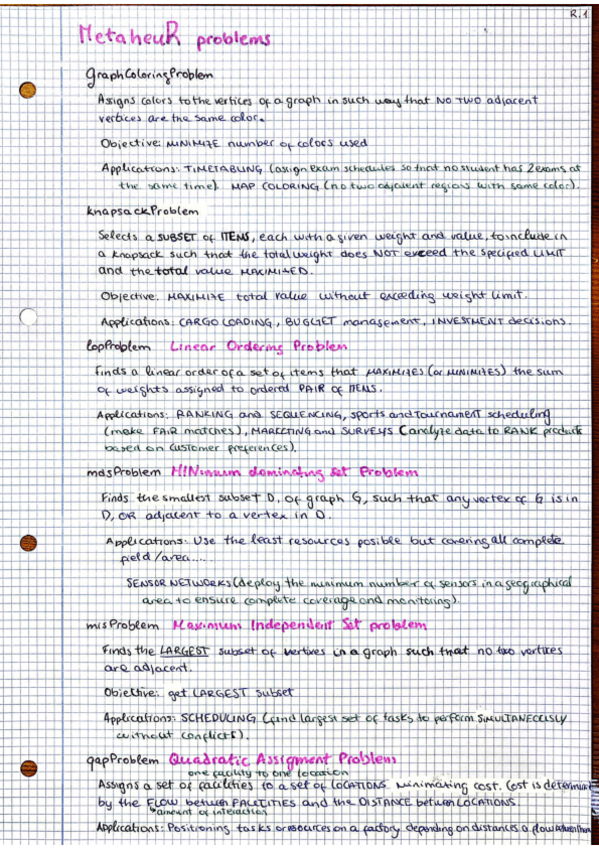 R.1
MetaheuR problems
graphColoringProblem
Assigns colors to the vertices of a graph in such way that NO TWO adjacent
vertices are the same color.
Objective: MINIMIZE number of colors used
Applications: TIMETABLING (assign exam schedules so that no student has 2 exams at
the same time). MAP COLORING (no two adjacent regions with same color).
knapsackProblem
Selects a SUBSET of ITEMS, each with a given weight and value, to include in
a knapsack such that the total weight does NOT exceed the specified LIMIT
and the total value MAXIMIZED.
Objective: MAXIMIZE total value without exceeding weight limit.
Applications: CARGO LOADING, BUGGET management, INVESTMENT decisions.
lopProblem Linear Ordering Problem
Finds a linear order of a set of items that MAXIMIZES (or MINIMIZES) the sum
of weights assigned to ordered PAIR of ITEMS.
Applications: RANKING and SEQUENCING, sports and tournament scheduling
(make FAIR matches), MARKETING and SURVEYS (analyze data to RANK products
based on customer preferences).
mdsProblem MINimum dominating set Problem
Finds the smallest subset D, of graph G, such that any vertex of G is in
D, OR adjacent to a vertex in D.
Applications: Use the least resources posible but covering all complete
field/area....
SENSOR NETWORKS (deploy the minimum number of sensors in a geographical
area to ensure complete coverage and monitoring).
misProblem Maximum Independent Set problem
Finds the LARGEST subset of vertives in a graph such that no two vertices
are adjacent.
Objective: get LARGEST subset
Applications: SCHEDULING (find largest set of tasks to perform SIMULTANEOUSLY
without conflicts).
qapProblem Quadratic Assigment Problem
one facility to one location
Assigns a set of facilities to a set of LOCATIONS minimizating cost. Cost is determin
by the FLOW between FACILITIES and the DISTANCE between LOCATIONS.
amount of interaction
Applications: Positioning tasks or resources on a factory depending on distances o flow between them